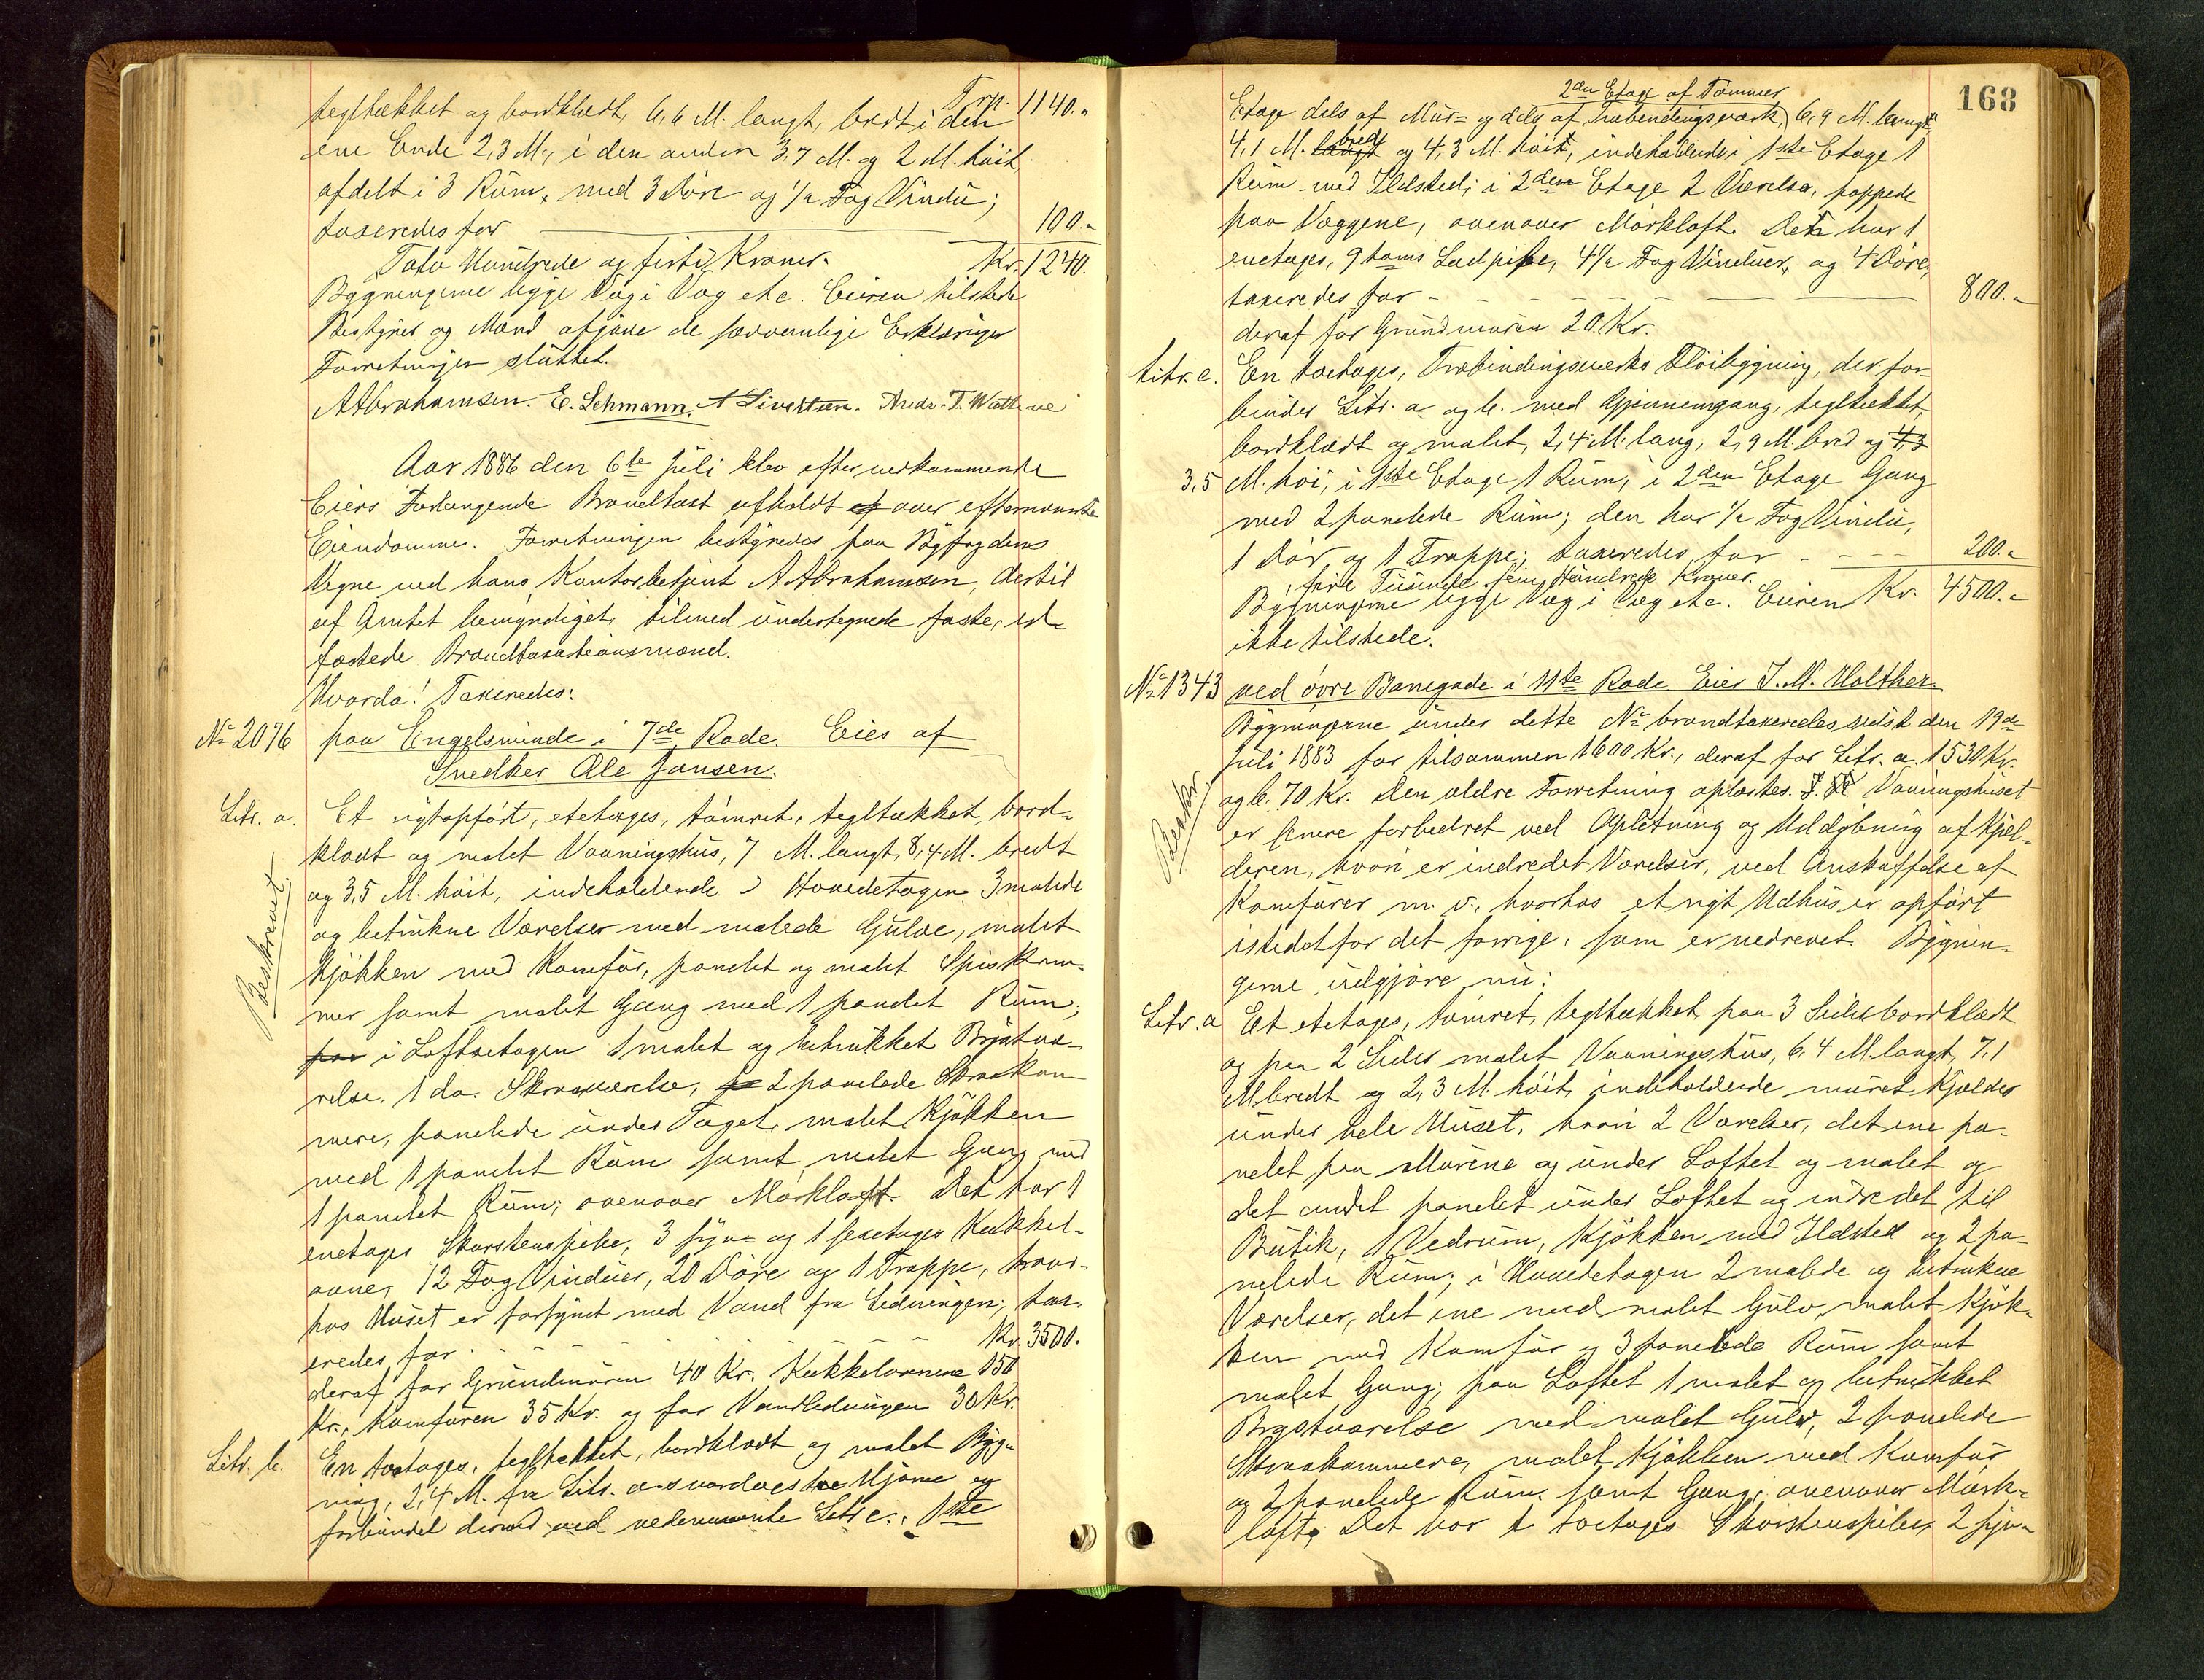 Trp. 1140.-
tegltækket og bordklædt, 6,6 M. langt, bredt i den
ene Ende 2,3 M., i den anden 3,7 M. og 2 M. höit
afdelt i 3 Rüm, med 3 Döre og 1/2 Fag Vindü;
taxeredes for 100.-
Tolv Hündrede og firti Kroner. Kr. 1240.
Bygningerne ligge Væg i Væg etc. Eieren tilstede
Bestyrer og Mænd afgave de sædvanlige Erklæringer
Forretningen slüttet.
AAbrahamsen. E. Lehmann. A Sivertsen. Andr. T. Wathne
Aar 1886 den 6te Jüli blev efter vedkommende
Eiers Forlangende Brandtaxt afholdt af over efternævnte
Eiendomme. Forretningen bestyredes paa Byfogdens
Vegne ved hans Kontorbetjent A Abrahamsen, dertil
af Amtet bemyndiget, tilmed ündertegnede faste, ed-
fæstede Brandtaxationsmænd.
Hvorda! Taxeredes:
No 2076 paa Engelsminde i 7de Rode. Eies af
Snedker Ole Jansen.
Litr. a. Et nytopfört, etetages, tömret, tegltækket, bord-
klædt og malet Vaaningshüs, 7 M. langt, 8,4 M. bredt
og 3,5 M. höit, indeholdende i Hovedetagen 3 malede
Beskrevet.
og betrükne Værelser med malede Gülve, malet
Kjökken med Komfür, panelet og malet Spiskam-
mer samt malet Gang med 1 panelet Rüm;
paa i Loftsetagen 1 malet og betrükket Brystvæ-
relse, 1 do. Skraaværelse, 2 panelede Skraakam-
mere, panelede ünder Taget, malet Kjökken
med 1 panelet Rüm samt malet Gang med
1 panelet Rüm; ovenover Mörkloft. Det har 1
enetages Skorstenspibe, 3 fyr- og 1 sexetages Kakkel-
ovne, 12 Fag Vindüer, 20 Döre og 1 Trappe, hvor-
hos Hüset er forsynet med Vand fra Ledningen; tax-
eredes for Kr. 3500.
deraf for Gründmüren 40 Kr. Kakkelovnene 150
Kr., Komfüren 35 Kr. og for Vandledningen 30 Kr.
Litr. b. En toetages, tegltækket, bordklædt og malet Byg-
ning, 2,4 M. fra Litr. a.s nordvestre Hjörne og
forbündet dermed ved nedennævnte Litr c., 1ste
168
2den Etage af Tömmer
Etage dels af Mür- og dels af Træbindingsværk, 6,9 M. langt,
4,1 M. langt bredt og 4,3 M. höit, indeholdende i 1ste Etage 1
Rüm med Ildsted; i 2den Etage 2 Værelser, pappede
paa Væggene, ovenover Mörkloft. Det har 1
enetages, 9 toms Ladpibe, 4 1/2 Fag Vindüer, og 4 Döre,
taxeredes for 800.-
deraf for Gründmüren 20 Kr.
Litr. c. En toetages, Træbindingsværks Flöibygning, der for-
binder Litr. a og b. med Gjennemgang, tegltækket,
bordklædt og malet, 2,4 M. lang, 2,9 M. bred og 4,3
3,5 M. höi, i 1ste Etage 1 Rüm, i 2den Etage Gang
med 2 panelede Rüm; den har 1/2 Fag Vindü,
1 Dör og 1 Trappe; taxeredes for 200.-
fire Tüsinde fem Hündrede Kroner.
Bygningerne ligge Væg i Væg etc. Eieren Kr. 4500.-
ikke tilstede.
No 1343 ved övre Banegade i 11te Rode Eier J. M. Holther
Bygningerne ünder dette No brandtaxeredes sidst den 19de
Jüli 1883 for tilsammen 1600 Kr., deraf for Litr. a. 1530 Kr.
og b. 70 Kr. Den ældre Forretning oplæstes. Vaaningshüset
er senere forbedret ved Opletning og Uddybning af Kjæl-
deren, hvori er indredet Værelser, ved Anskaffelse af
Komfürer m. v., hvorhos et nyt Udhüs er opfört
istedetfor det forrige, som er nedrevet. Bygnin-
gerne üdgjöre nü:
Litr. a Et etetages, tömret, tegltækket, paa 3 Sider bordklædt
og paa 2 Sider malet Vaaningshüs, 6,4 M. langt, 7,1
M. bredt og 2,3 M. höit, indeholdende müret Kjælder
ünder hele Hüset, hvori 2 Værelser, det ene pa-
nelet paa Mürene og ünder Loftet og malet og
det andet panelet ünder Loftet og indredet til
Bütik, 1 Vedrüm, Kjökken med Ildsted og 2 pa-
nelede Rüm; i Hovedetagen 2 malede og betrükne
Værelser, det ene med malet Gülv, malet Kjök-
ken med Komfür og 3 panelede Rüm samt
malet Gang; paa Loftet 1 malet og betrükket
Brystværelse med malet Gülv, 2 panelede
Skraakammere, malet Kjökken med Komfür
og 2 panelede Rüm samt Gang; ovenover Mörk-
loft. Det har 1 toetages Skorstenspibe, 2 fyr-